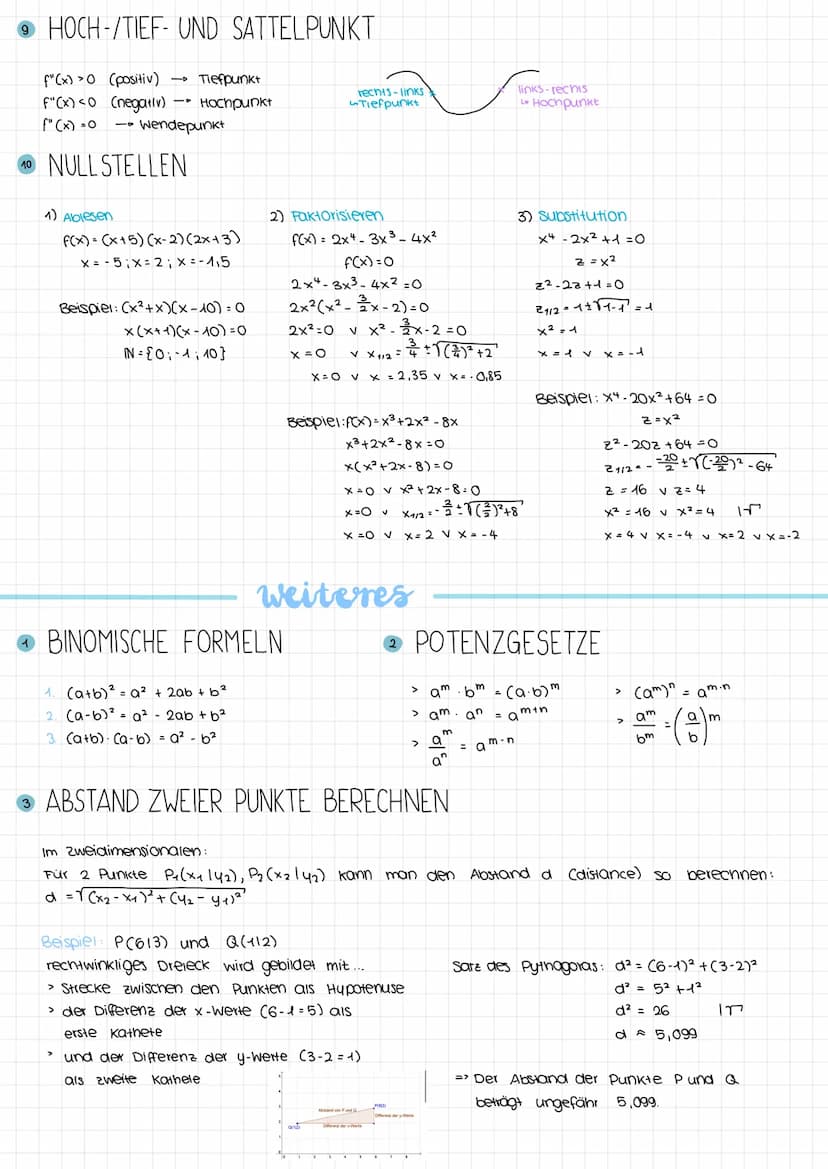 9 HOCH-/TIEF- UND SATTELPUNKT
f"(x) > 0 (positiv) → Tiefpunkt
f"(x) < 0 (negativ) → Hochpunkt
f"(x) = 0 → Wendepunkt
rechts-links
↳ Tiefpunkt
links-rechts
↳ Hochpunkt
10 NULLSTELLEN
1) Ablesen
f(x) = (x+5)(x-2)(2x+3)
x = -5 ; x = 2 ; x = -1,5
Beispiel: (x²+x)(x-10) = 0
x(x+1)(x-10) = 0
IN = {0 ; -1 ; 10}
2) Faktorisieren
f(x) = 2x⁴ - 3x³ - 4x²
f(x) = 0
2x⁴ - 3x³ - 4x² = 0
2x²(x² - 3/2x - 2) = 0
2x² = 0 v x² - 3/2x - 2 = 0
x = 0 v x1/2 = 3/4 ± √(3/4)² + 2
x = 0 v x = 2,35 v x = -0,85
Beispiel: f(x) = x³ + 2x² - 8x
x³ + 2x² - 8x = 0
x(x² + 2x - 8) = 0
x = 0 v x² + 2x - 8 = 0
x = 0 v x1/2 = -2/2 ± √(2/2)² + 8
x = 0 v x = 2 v x = -4
3) Substitution
x⁴ - 2x² + 1 = 0
z = x²
z² - 2z + 1 = 0
z1/2 = 1 ± √1-1 = 1
x² = 1
x = 1 v x = -1
Beispiel: x⁴ - 20x² + 64 = 0
z = x²
z² - 20z + 64 = 0
z1/2 = - -20/2 ± √(-20/2)² - 64
z = 16 v z = 4
x² = 16 v x² = 4 |√
x = 4 v x = -4 v x = 2 v x = -2
weiteres
1 BINOMISCHE FORMELN
1. (a+b)² = a² + 2ab + b²
2. (a-b)² = a² - 2ab + b²
3. (a+b)·(a-b) = a² - b²
2 POTENZGESETZE
> aᵐ · bᵐ = (a·b)ᵐ
> aᵐ · aⁿ = aᵐ⁺ⁿ
> aᵐ/aⁿ = aᵐ⁻ⁿ
> (aᵐ)ⁿ = aᵐ·ⁿ
> aᵐ/bᵐ = (a/b)ᵐ
3 ABSTAND ZWEIER PUNKTE BERECHNEN
Im zweidimensionalen:
Für 2 Punkte P₁(x₁|y₂), P₂(x₂|y₂) kann man den Abstand d (distance) so berechnen:
d = √(x₂-x₁)² + (y₂-y₁)²
Beispiel: P(6|3) und Q(1|2)
rechtwinkliges Dreieck wird gebildet mit...
> Strecke zwischen den Punkten als Hypotenuse
> der Differenz der x-Werte (6-1=5) als
erste Kathete
> und der Differenz der y-Werte (3-2=1)
als zweite Kathete
Satz des Pythagoras: d² = (6-1)² + (3-2)²
d² = 5² + 1²
d² = 26 |√
d ≈ 5,099
=> Der Abstand der Punkte P und Q
beträgt ungefähr 5,099.
Abstand von P und Q
P(6|3)
Differenz der y-Werte
Q(1|2)
Differenz der x-Werte